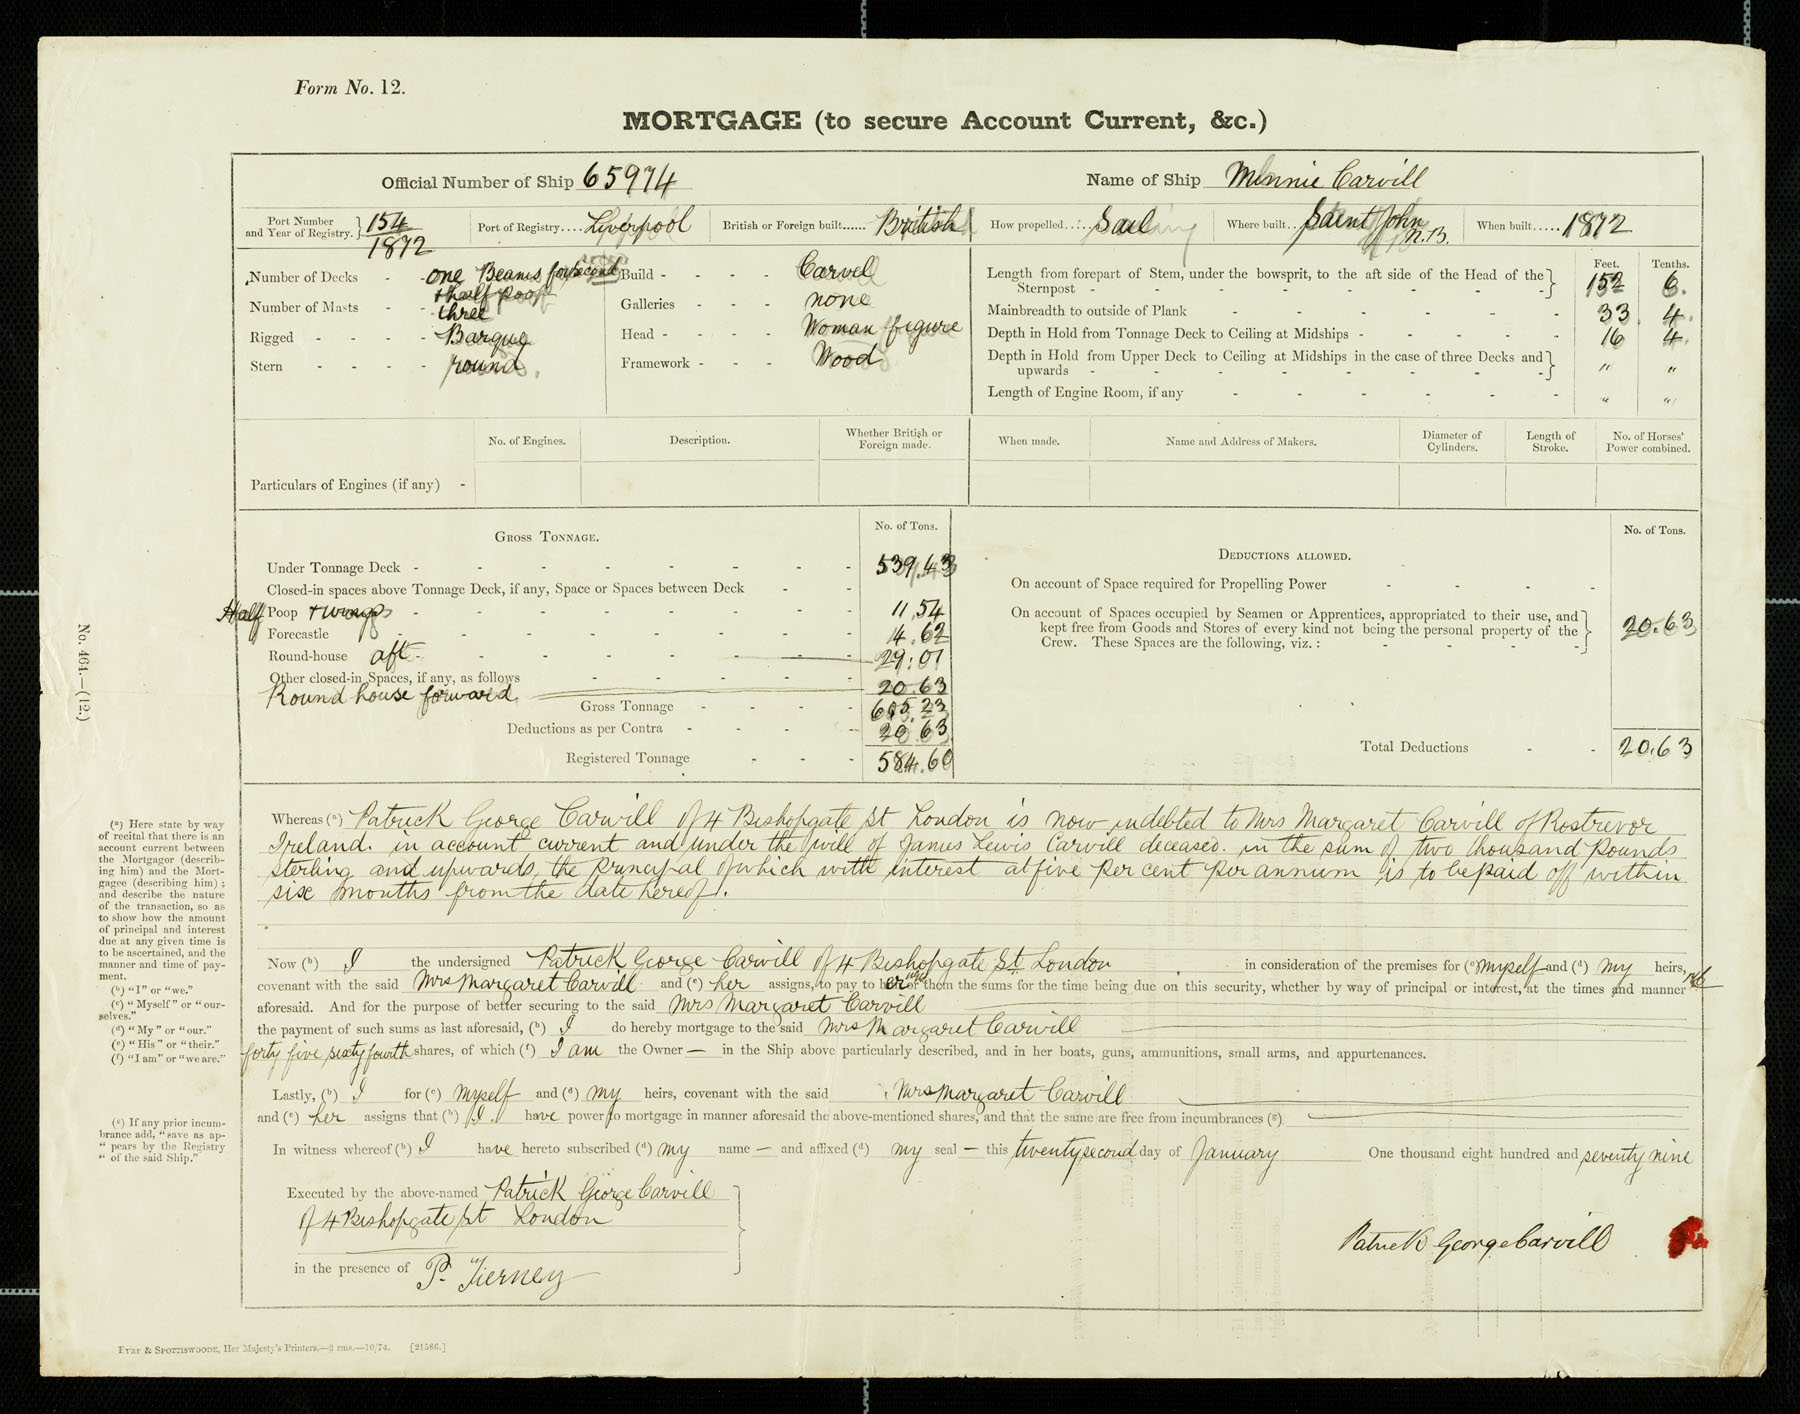 Form No. 12.
MORTGAGE (to secure Account Current, &c.)
Official Number of Ship 65974 Name of Ship Minnie Carvill
Port Number and Year of Registry. } 154 / 1872 Port of Registry.... Liverpool British or Foreign built...... British How propelled..... Sail Where built.. Saint John N.B. When built..... 1872
Number of Decks - - one Beams for second & half poop
Number of Masts - - three
Rigged - - - - Barque
Stern - - - - round
Build - - - - Carvel
Galleries - - - none
Head - - - - Woman figure
Framework - - - Wood
Feet. Tenths.
Length from forepart of Stem, under the bowsprit, to the aft side of the Head of the
Sternpost - - - - - - - - } 152 6.
Mainbreadth to outside of Plank - - - - - - 33 4.
Depth in Hold from Tonnage Deck to Ceiling at Midships - - - - - 16 4.
Depth in Hold from Upper Deck to Ceiling at Midships in the case of three Decks and
upwards - - - - - - - - } " "
Length of Engine Room, if any - - - - - - " "
No. of Engines. Description. Whether British or Foreign made. When made. Name and Address of Makers. Diameter of Cylinders. Length of Stroke. No. of Horses' Power combined.
Particulars of Engines (if any) -
GROSS TONNAGE. No. of Tons.
Under Tonnage Deck - - - - - - - - 539.43
Closed-in spaces above Tonnage Deck, if any, Space or Spaces between Deck - -
Half Poop & wings - - - - - - - 11.54
Forecastle - - - - - - - - 4.62
Round-house aft - - - - - - 29.01
Other closed-in Spaces, if any, as follows - - - - -
Round house forward 20.63
Gross Tonnage - - - - 605.23
Deductions as per Contra - - - - 20.63
Registered Tonnage - - - 584.60
DEDUCTIONS ALLOWED. No. of Tons.
On account of Space required for Propelling Power - - - -
On account of Spaces occupied by Seamen or Apprentices, appropriated to their use, and
kept free from Goods and Stores of every kind not being the personal property of the
Crew. These Spaces are the following, viz. : - - - - } 20.63
Total Deductions - - 20.63
No. 464.—(12.)
Whereas (a) Patrick George Carvill of 4 Bishopgate St London is now indebted to Mrs Margaret Carvill of Rostrevor
Ireland. in account current and under the will of James Lewis Carvill deceased. in the sum of two thousand pounds
sterling and upwards, the principal of which with interest at five per cent per annum is to be paid off within
six months from the date hereof.
Now (b) I the undersigned Patrick George Carvill of 4 Bishopgate St. London in consideration of the premises for (c) myself and (d) my heirs,
covenant with the said Mrs Margaret Carvill and (e) her assigns, to pay to her or them the sums for the time being due on this security, whether by way of principal or interest, at the times and manner
aforesaid. And for the purpose of better securing to the said Mrs Margaret Carvill
the payment of such sums as last aforesaid, (b) I do hereby mortgage to the said Mrs Margaret Carvill
forty five sixty fourth shares, of which (f) I am the Owner — in the Ship above particularly described, and in her boats, guns, ammunitions, small arms, and appurtenances.
Lastly, (b) I for (c) myself and (d) my heirs, covenant with the said Mrs Margaret Carvill
and (e) her assigns that (b) I have power to mortgage in manner aforesaid the above-mentioned shares, and that the same are free from incumbrances (g)
In witness whereof (b) I have hereto subscribed (d) my name — and affixed (d) my seal — this twenty second day of January One thousand eight hundred and seventy nine
Executed by the above-named Patrick George Carvill
of 4 Bishopgate St London
in the presence of P. Tierney
Patrick George Carvill
(a) Here state by way
of recital that there is an
account current between
the Mortgagor (describ-
ing him) and the Mort-
gagee (describing him) ;
and describe the nature
of the transaction, so as
to show how the amount
of principal and interest
due at any given time is
to be ascertained, and the
manner and time of pay-
ment.
(b) "I" or "we."
(c) "Myself" or "our-
selves."
(d) "My" or "our."
(e) "His" or "their."
(f) "I am" or "we are."
(g) If any prior incum-
brance add, "save as ap-
" pears by the Registry
" of the said Ship."
EYRE & SPOTTISWOODE, Her Majesty's Printers.—2 rms.—10/74. [21586.]